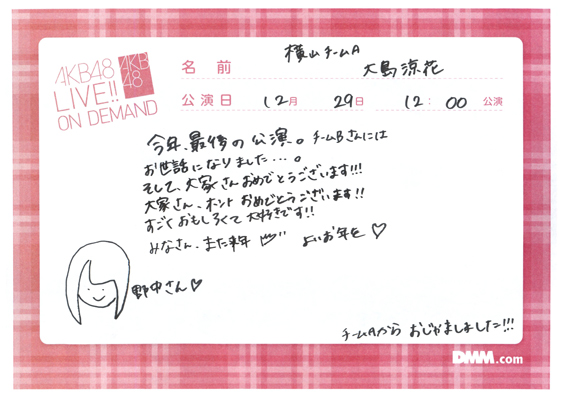 AKB48
LIVE!!
ON DEMAND
AKB
48
名前 横山チームA
大島涼花
公演日 12月 29日 12:00 公演
今年、最後の公演、。チームBさんには
お世話になりました…。
そして、大家さんおめでとうございます!!!
大家さん、ホントおめでとうございます!!
すごくおもしろくて大好きです!!
みなさん、また来年 よいお年を♡
野中さん♡
チームAから おじゃましました!!!
DMM.com